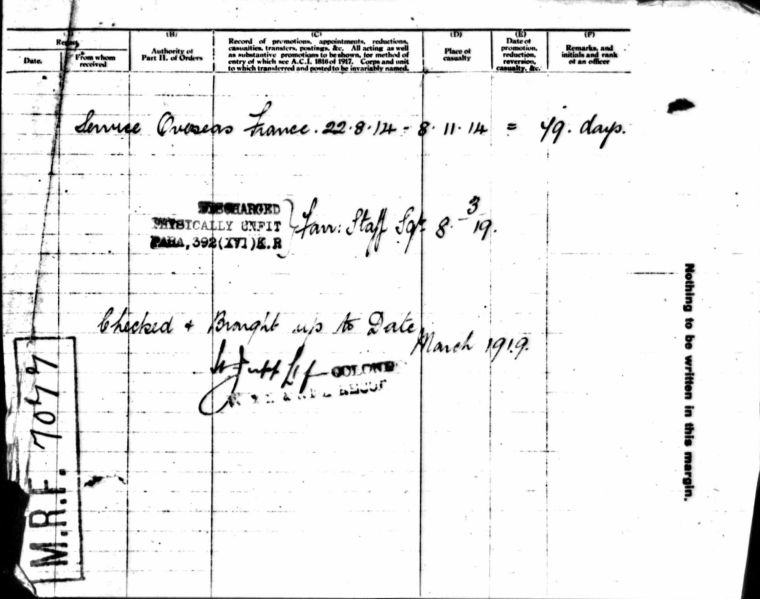 (A) (B) (C) (D) (E) (F)
Report
Date. From whom received
Authority of Part II. of Orders
Record of promotions, appointments, reductions, casualties, transfers, postings, &c. All acting as well as substantive promotions to be shown, for method of entry of which see A.C.I. 1816 of 1917. Corps and unit to which transferred and posted to be invariably named.
Place of casualty
Date of promotion, reduction, reversion, casualty, &c.
Remarks, and initials and rank of an officer
Service Overseas France. 22.8.14 - 8.11.14 = 79. days.
DISCHARGED
PHYSICALLY UNFIT
PARA, 392(XVI)K.R
Farr: Staff Sgt 8 3 19.
Checked & Brought up to Date
March 1919.
COLONEL
M.R.F. 7077
Nothing to be written in this margin.